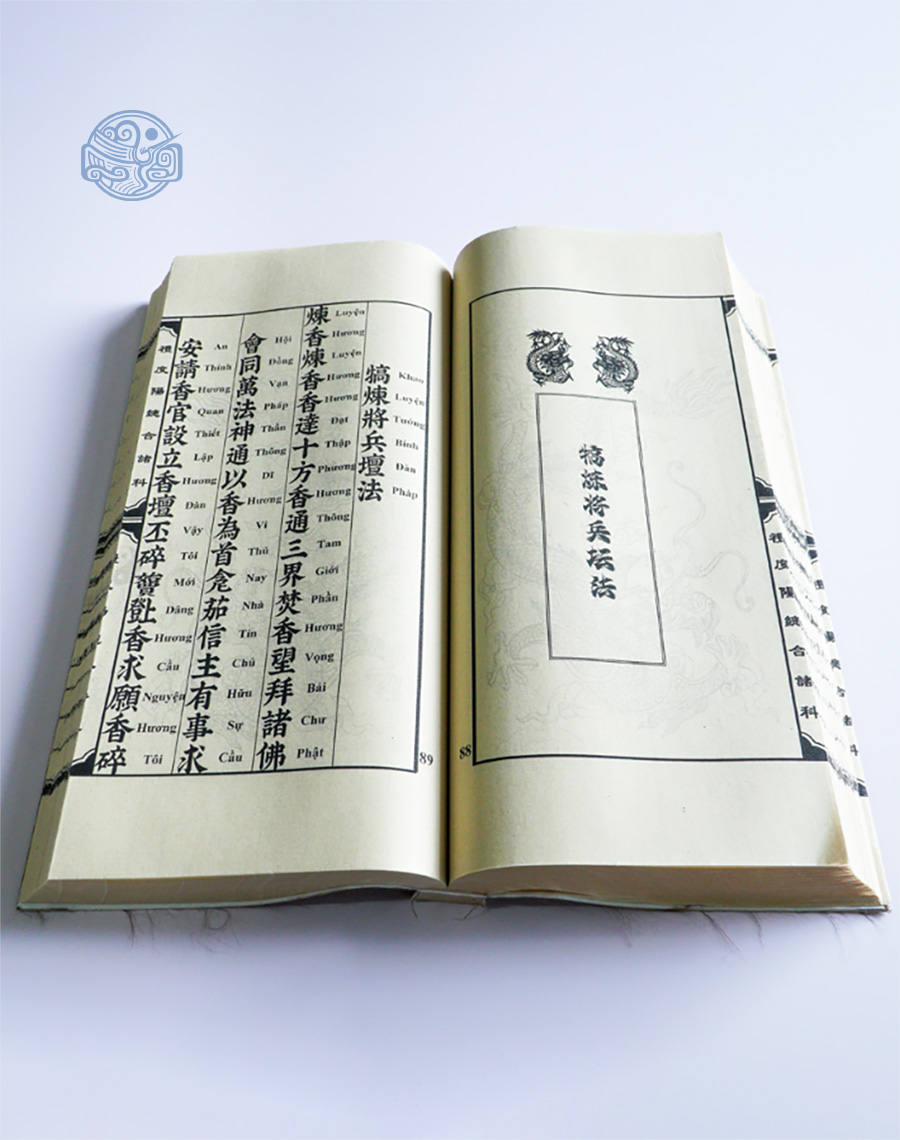 犒煉将兵坛法
禮度陽鏡合諸科
88
犒煉將兵壇法
Khao Luyện Tướng Binh Đàn Pháp
煉香煉香香達十方香通三界焚香望拜諸佛
Luyện Hương Luyện Hương Hương Đạt Thập Phương Hương Thông Tam Giới Phần Hương Vọng Bái Chư Phật
會同萬法神通以香為首茄信主有事求
Hội Đồng Vạn Pháp Thần Thông Dĩ Hương Vi Thủ Nay Nhà Tín Chủ Hữu Sự Cầu
安請香官設立香壇丕碎香求願香碎
An Thỉnh Hương Quan Thiết Lập Hương Đàn Vậy Tôi Mới Dâng Hương Cầu Nguyện Hương Tôi
禮度陽鏡合諸科
89